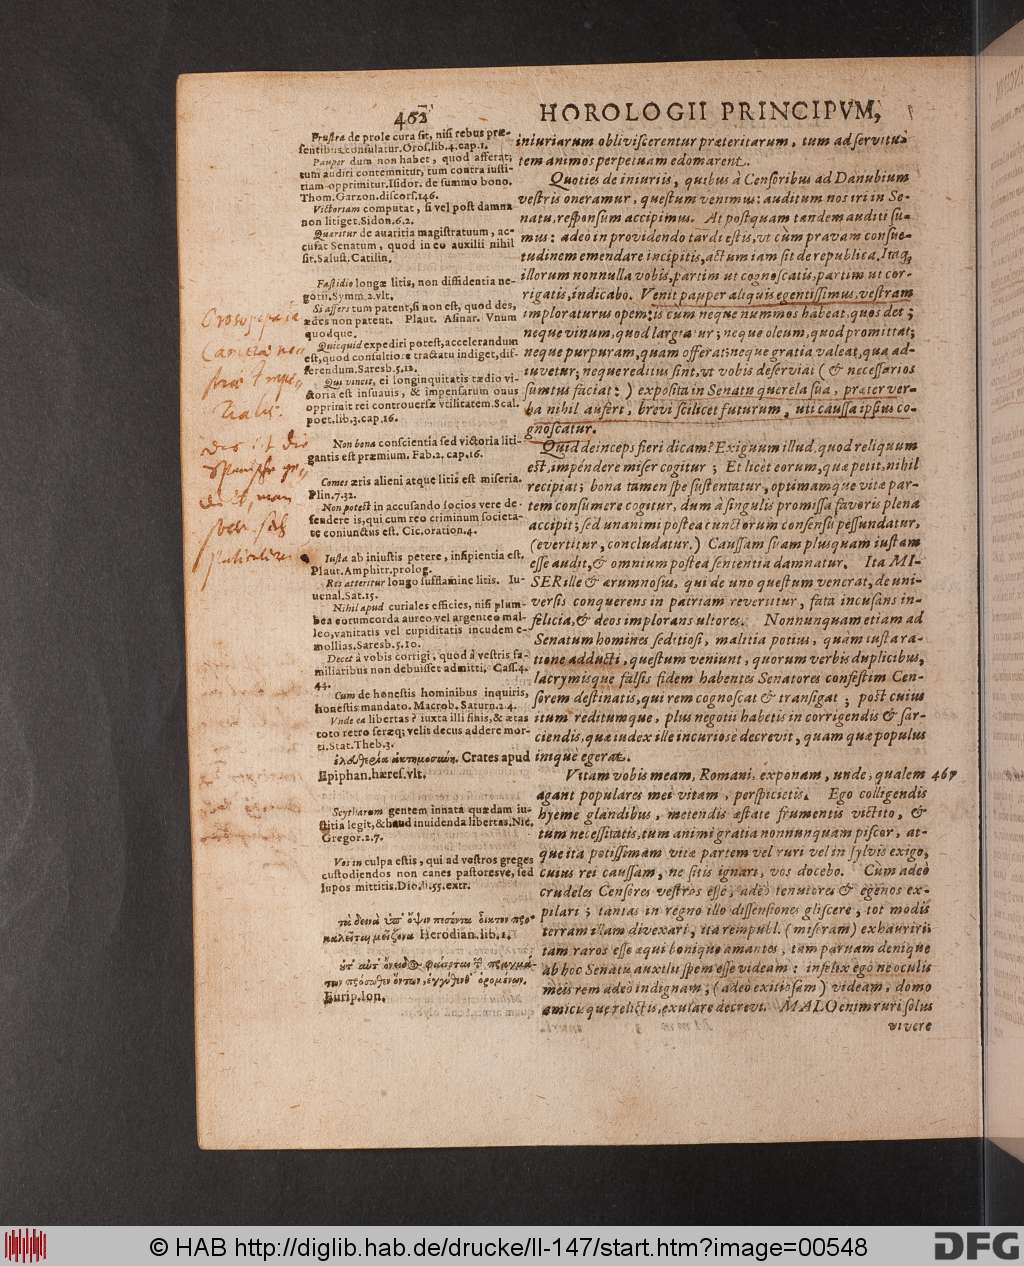 462
HOROLOGII PRINCIPVM,
Frustra de prole cura sit, nisi rebus præ-
sentibus consulatur. Oros. lib. 4. cap. 1.
Pauper dum non habet, quod afferat;
tum audiri contemnitur, tum contra iusti-
tiam opprimitur. Isidor. de summo bono.
Thom. Garzon. discors. 146.
Victoriam computat, si vel post damna
non litiget. Sidon. 6. 2.
Quæritur de avaritia magistratuum, ac-
cusat Senatum, quod in eo auxilii nihil
sit. Salust. Catilin.
Fastidio longæ litis, non diffidentia ne-
gotii. Symm. 2. vlt.
Si affers tum patent, si non est, quod des,
ædes non patent. Plaut. Asinar. Vnum
quodque.
Quicquid expediri potest, accelerandum
est, quod consultiore tractatu indiget, dif-
ferendum. Saresb. 5. 12.
Qui vincit, ei longinquitatis tædio vi-
ctoria est insuauis, & impensarum onus
opprimit rei controuersæ vtilitatem. Scal.
poet. lib. 3. cap. 16.
Non bona conscientia sed victoria liti-
gantis est præmium. Fab. 2. cap. 16.
Comes æris alieni atque litis est miseria.
Plin. 7. 32.
Non potest in accusando socios vere de-
fendere is, qui cum reo criminum societa-
te coniunctus est. Cic. oration. 4.
Iusta ab iniustis petere, insipientia est.
Plaut. Amphitr. prolog.
Res atteritur longo sufflamine litis. Iu-
uenal. Sat. 15.
Nihil apud curiales efficies, nisi plum-
bea eorum corda aureo vel argenteo mal-
leo, vanitatis vel cupiditatis incudem e-
mollias. Saresb. 5. 10.
Decet à vobis corrigi, quod à vestris fa-
miliaribus non debuisset admitti. Cass. 4.
44.
Cum de honestis hominibus inquiris,
honestis mandato. Macrob. Saturn. 2. 4.
Vnde ea libertas? iuxta illi finis, & ætas
toto retro seræq; velit decus addere mor-
ti. Stat. Theb. 3.
ἐλευθερία ἀκτημοσύνη. Crates apud
Epiphan. hæres. vlt.
Scytharum gentem innata quædam iu-
stitia legit, & haud inuidenda libertas. Nic.
Gregor. 2. 7.
Vos in culpa estis, qui ad vostros greges
custodiendos non canes pastoresve, sed
lupos mittitis. Dio. li. 55. extr.
Herodian. lib. 1.
Eurip. Ion.
iniuriarum obliviscerentur præteritarum, tum ad servitu-
tem animos perpetuam edomarent.
Quoties de iniuriis, quibus à Censoribus ad Danubium
vestris oneramur, questum venimus: auditum nostri in Se-
natu, responsum accipimus. At postquam tandem auditi su-
mus: adeò in providendo tardi estis, vt cùm pravam consue-
tudinem emendare incipitis, actum iam sit de republica. Itaq,
illorum nonnulla vobis, partim ut cognoscatis, partim ut cor-
rigatis, indicabo. Venit pauper aliquis egentissimus, vestram
imploraturus opem: is cum neque nummos habeat, quos det;
neque vinum, quod largiatur; neque oleum, quod promittat;
neque purpuram, quam offerat; neque gratia valeat, qua ad-
iuvetur; neque reditus sint, vt vobis deserviat (& necessarios
sumtus faciat:) exposita in Senatu querela sua, præter ver-
ba nihil aufert, brevi scilicet futurum, uti caussa ipsius co-
gnoscatur.
Quid deinceps fieri dicam? Exiguum illud, quod reliquum
est, impendere miser cogitur; Et licet eorum, quæ petit, nihil
recipiat; bona tamen spe sustentatur, optimamque vitæ par-
tem consumere cogitur, dum à singulis promissa favoris plena
accipit; sed unanimi postea cunctorum consensu pessundatur,
(evertitur, concludatur.) Caussam suam plusquam iustam
esse audit, & omnium postea sententia damnatur. Ita MI-
SER ille & ærumnosus, qui de uno questum venerat, de uni-
versis conquerens in patriam revertitur, fata incusans in-
felicia, & deos implorans ultores. Nonnunquam etiam ad
Senatum homines seditiosi, malitia potius, quàm iusta ra-
tione adducti, questum veniunt, quorum verbis duplicibus,
lacrymisque falsis fidem habentes Senatores confestim Cen-
sorem destinatis, qui rem cognoscat & transigat; post cuius
itum reditumque, plus negotii habetis in corrigendis & sar-
ciendis, quæ iudex ille incuriose decrevit, quam quæ populus
iniquè egerat.
Vitam vobis meam, Romani, exponam, unde, qualem 467
agant populares mei vitam, perspicietis. Ego colligendis
hyeme glandibus, metendis æstate frumentis victito, &
tum necessitatis, tum animi gratia nonnunquam piscor, at-
que ita potissimam vitæ partem vel ruri vel in sylvis exigo,
cuius rei caussam, ne sitis ignari, vos docebo. Cùm adeò
crudeles Censores vestros esse, adeò tenuiores & egenos ex-
pilari; tantas in regno illo dissensiones gliscere, tot modis
terram illam divexari, ita rempubl. (miseram) exhauriri
tam raros esse æqui bonique amantes, tam parvam denique
ab hoc Senatu auxilii spem esse videam: infelix ego ne oculis
meis rem adeò indignam, (adeò exitiosam) videam, domo
amicisque relictis, exulare decrevi. MALO enim ruri solus
vivere
© HAB http://diglib.hab.de/drucke/ll-147/start.htm?image=00548
DFG